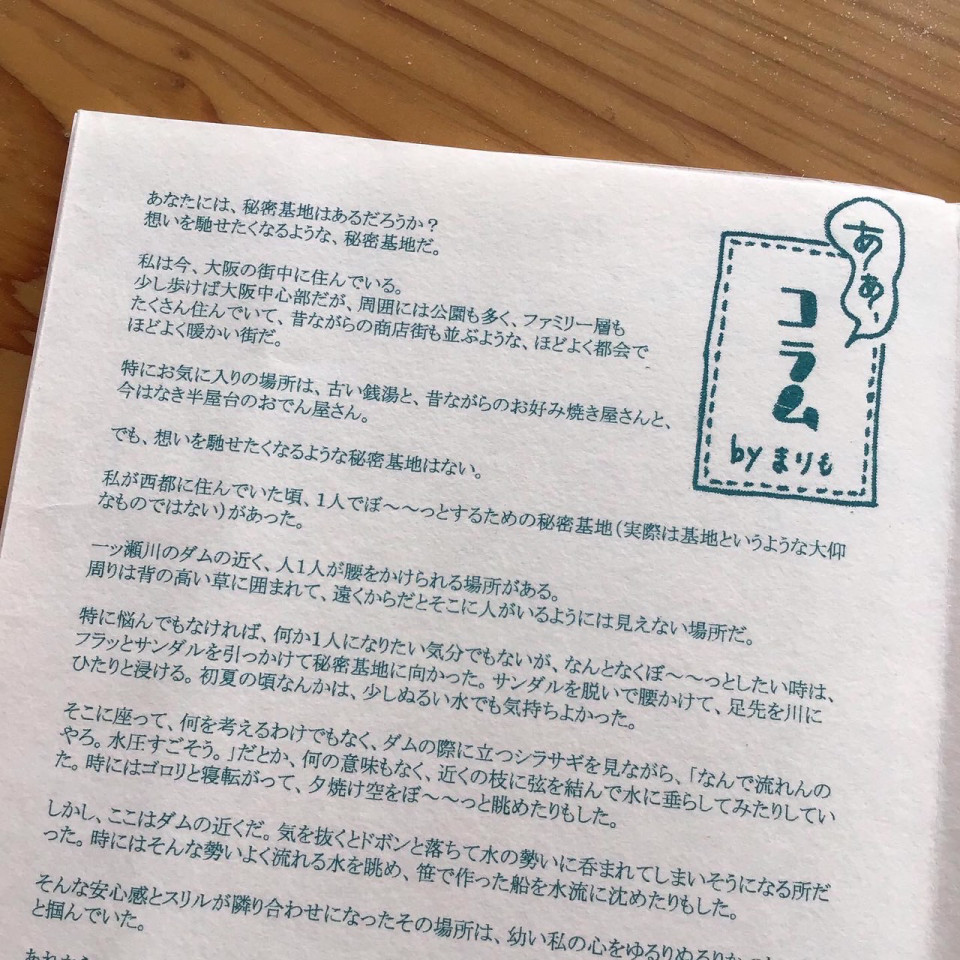 あなたには、秘密基地はあるだろうか？
想いを馳せたくなるような、秘密基地だ。
私は今、大阪の街中に住んでいる。
少し歩けば大阪中心部だが、周囲には公園も多く、ファミリー層も
たくさん住んでいて、昔ながらの商店街も並ぶような、ほどよく都会で
ほどよく暖かい街だ。
特にお気に入りの場所は、古い銭湯と、昔ながらのお好み焼き屋さんと、
今はなき半屋台のおでん屋さん。
でも、想いを馳せたくなるような秘密基地はない。
ああ、
コラム
by まりも
私が西都に住んでいた頃、1人でぼ〜〜っとするための秘密基地（実際は基地というような大仰
なものではない）があった。
一ッ瀬川のダムの近く、人1人が腰をかけられる場所がある。
周りは背の高い草に囲まれて、遠くからだとそこに人がいるようには見えない場所だ。
特に悩んでもなければ、何か1人になりたい気分でもないが、なんとなくぼ〜〜っとしたい時は、
フラッとサンダルを引っかけて秘密基地に向かった。サンダルを脱いで腰かけて、足先を川に
ひたりと浸ける。初夏の頃なんかは、少しぬるい水でも気持ちよかった。
そこに座って、何を考えるわけでもなく、ダムの際に立つシラサギを見ながら、「なんで流れんの
やろ。水圧すごそう。」だとか、何の意味もなく、近くの枝に弦を結んで水に垂らしてみたりしてい
た。時にはゴロリと寝転がって、夕焼け空をぼ〜〜っと眺めたりもした。
しかし、ここはダムの近くだ。気を抜くとドボンと落ちて水の勢いに呑まれてしまいそうになる所だ
った。時にはそんな勢いよく流れる水を眺め、笹で作った船を水流に沈めたりもした。
そんな安心感とスリルが隣り合わせになったその場所は、幼い私の心をゆるりぬるり
と掴んでいた。